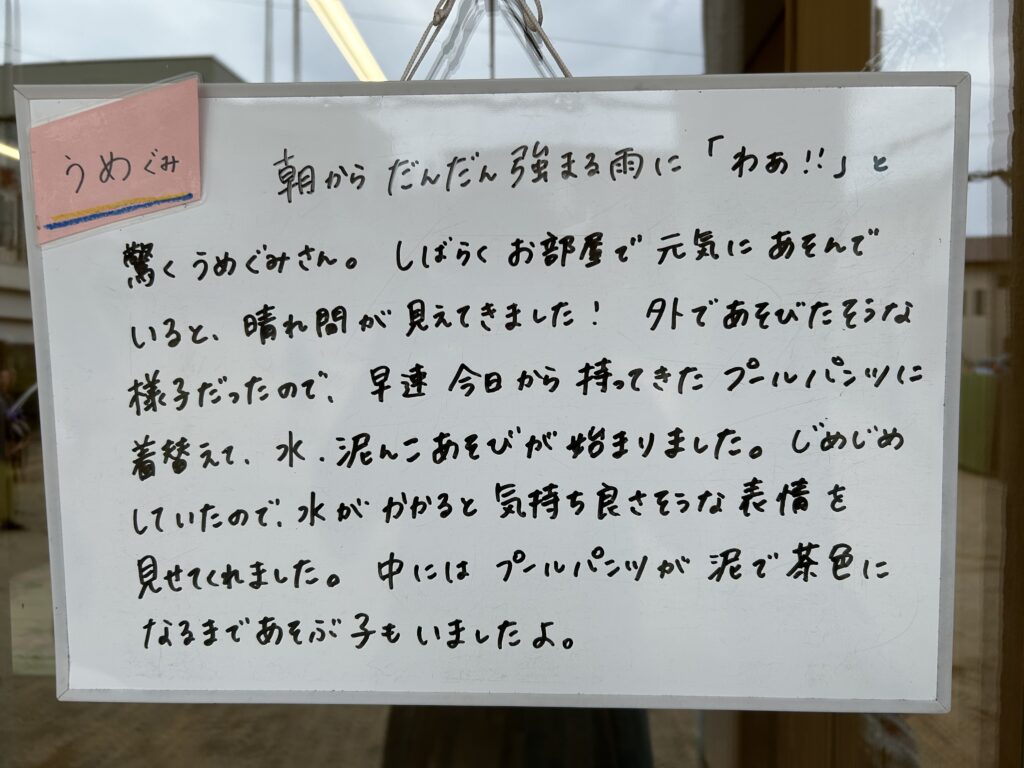 うめぐみ
朝から だんだん 強まる雨に「わぁ!!」と
驚く うめぐみさん。しばらく お部屋で 元気に あそんで
いると、晴れ間が 見えてきました! 外であそびたそうな
様子だったので、早速 今日から 持ってきた プールパンツに
着替えて、水・泥んこあそびが 始まりました。じめじめ
していたので、水が かかると 気持ち良さそうな 表情を
見せてくれました。中には プールパンツが 泥で 茶色に
なるまであそぶ 子も いましたよ。